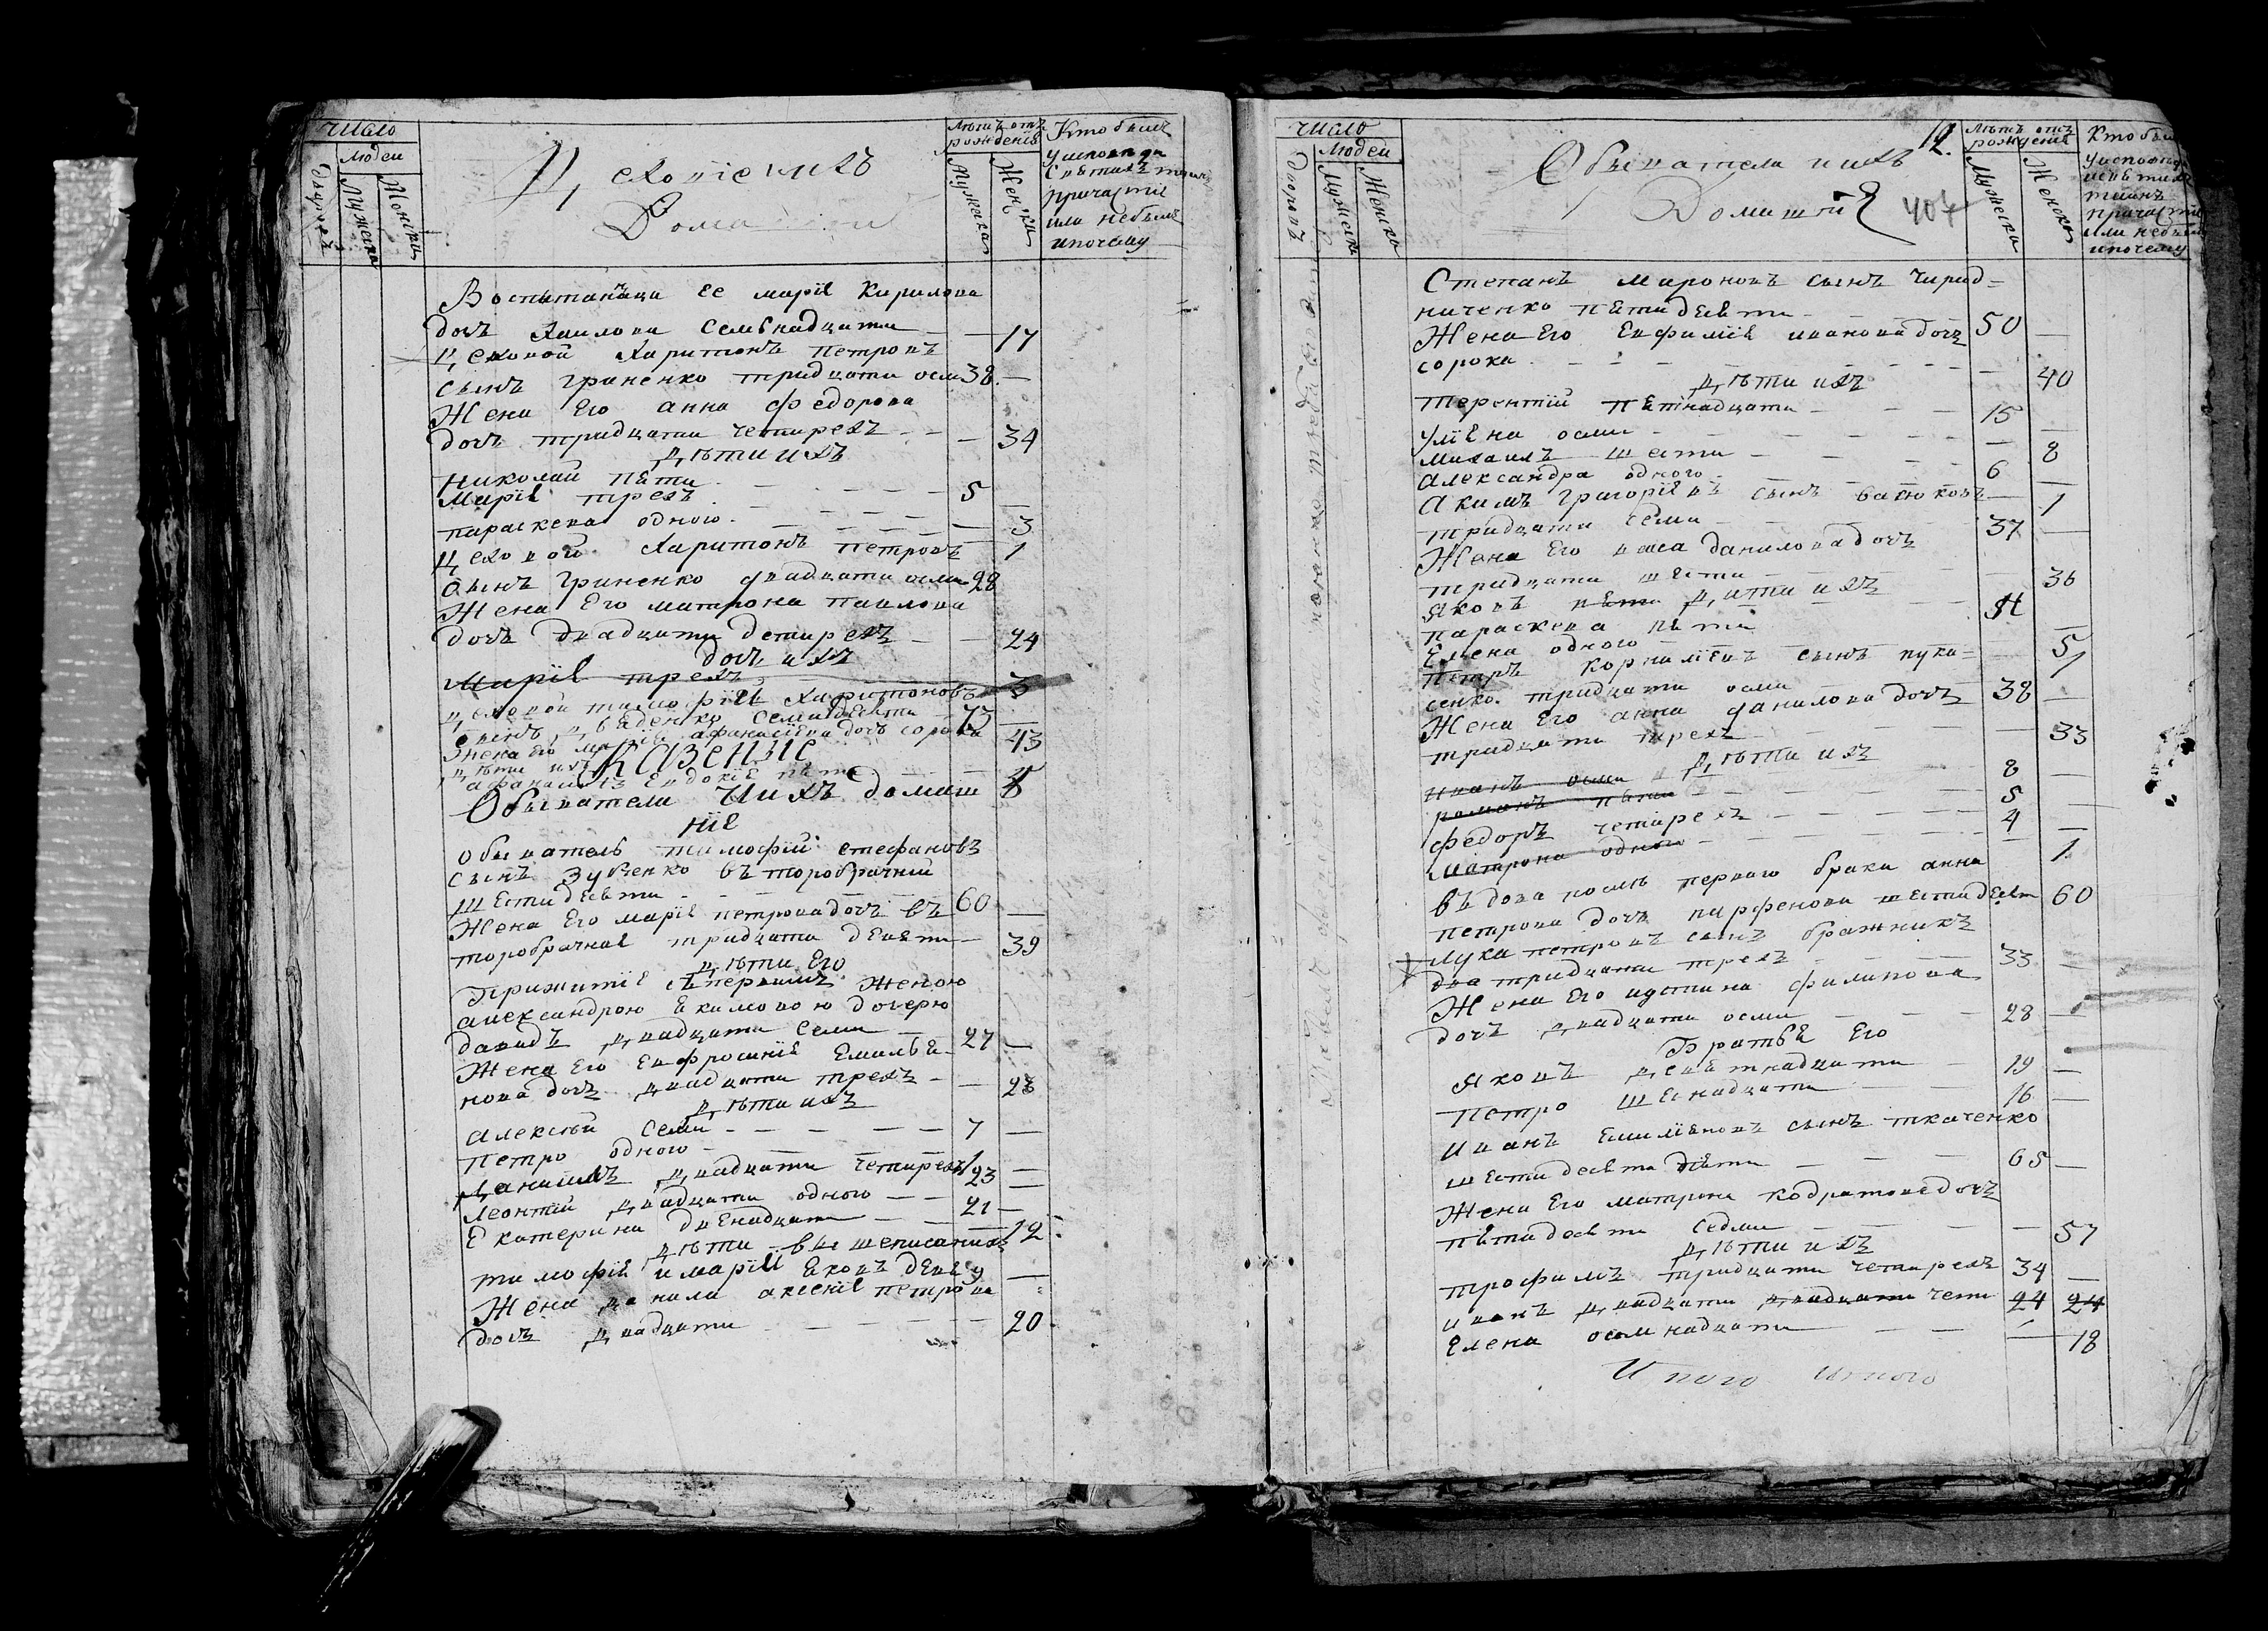 число
людей
дворовъ
мужска
женска
Цеховіе ихъ
Дома
лѣтъ отъ
рожденія
мужеска
женска
Кто былъ
у исповѣди
Святыхъ таинъ
причастія
или небылъ
ипочему
Воспытаница ее маріе Кирилова
дочъ Павлова семьнадцати 17
Цеховой Харитонъ петровъ
сынъ граненко тридцати осми 38
Жена Его анна Федорова
дочъ тридцати четирехъ 34
Дѣти ихъ
Николай пѣти 5
Маріе трехъ 3
параскева одного 1
Цеховой Харитонъ петровъ
Сынъ Гриненко двадцати осми 28
Жена Его матрона павлова
дочъ двадцати четирехъ 24
дочъ ихъ
Маріе трехъ 3
Цеховой тимофѣй Харитоновъ
сынъ семидесѣти 73
Жена Его маріе афанасіева дочъ сорока 43
Дѣти ихъ
Казеніе
Евдокіе пѣти 5
Обыватели Ихъ домаш
ніе
обыватель тимофій стефановъ
сынъ Зубенко въторобрачній
шестидесѣти 60
Жена Его маріе петрова дочъ въ
торобрачнае тридцати девѣти 39
Дѣти Его
Прижитіе съ первымъ Женою
александрою Екимовою дочерю
давидъ двадцати семи 27
Жена Его Евфросиніе Емильѣ
нова дочъ двадцати трехъ 23
Дѣти ихъ
алексѣй семи 7
Петро одного 1
Данишлъ двадцати четирехъ 23
Леонтій двадцати одного 21
Екатерина двенадцати 12
Дѣти вышеписанихъ
тимофіе и маріи Ековъ девѣ 9
Жена данила аксеніе петрова
дочъ двадцати 20
число
людей
дворовъ
мужска
женска
Обывателикихъ
Домашній
12.
407
лѣтъ отъ
рожденія
мужеска
женска
Кто былъ
у исповѣди
исвѣтихъ
таинъ
причастіе
или небылъ
ипочему
Степанъ мироновъ сынъ чиред=
ниченко пѣтидесѣти 50
Жена Его Евфиміе иванова дочъ
сорока 40
Дѣти ихъ
терентій пѣтнадцати 15
Уліѣна осми 8
михаилъ шести 6
александра одного 1
Акимъ григоріевъ сынъ
тридцати семи 37
Жена Его васа данилова дочъ
тридцати шести 36
Дѣти ихъ
Яковъ пѣти
параскева пѣти 5
Елена одного 1
петръ корниліевъ сынъ лука=
сенко тридцати осми 38
Жена Его анна данилова дочъ
тридцати трехъ 33
Дѣти ихъ
иванъ осми 8
романъ пѣти 5
федоръ четирехъ 4
Матрона одного 1
въдова послѣ первого брака анна
петрова дочъ парфенова шестидесѣт 60
Лука петровъ сынъ бражникъ
два тридцати трехъ 33
Жена Его иустина филипова
дочъ двадцати осми 28
Братьѣ Его
Яковъ девѣтнадцати 19
петро шеснадцати 16
иванъ Емиліѣновъ сынъ ткаченко
шестидесѣти пѣти 65
Жена Его матрона кодратова дочъ
пѣтидесѣти седми 57
Дѣти ихъ
трофимъ тридцати четирехъ 34
иванъ двадцати двадцати чети 24 24
Елена осмнадцати 18
Итого Итого